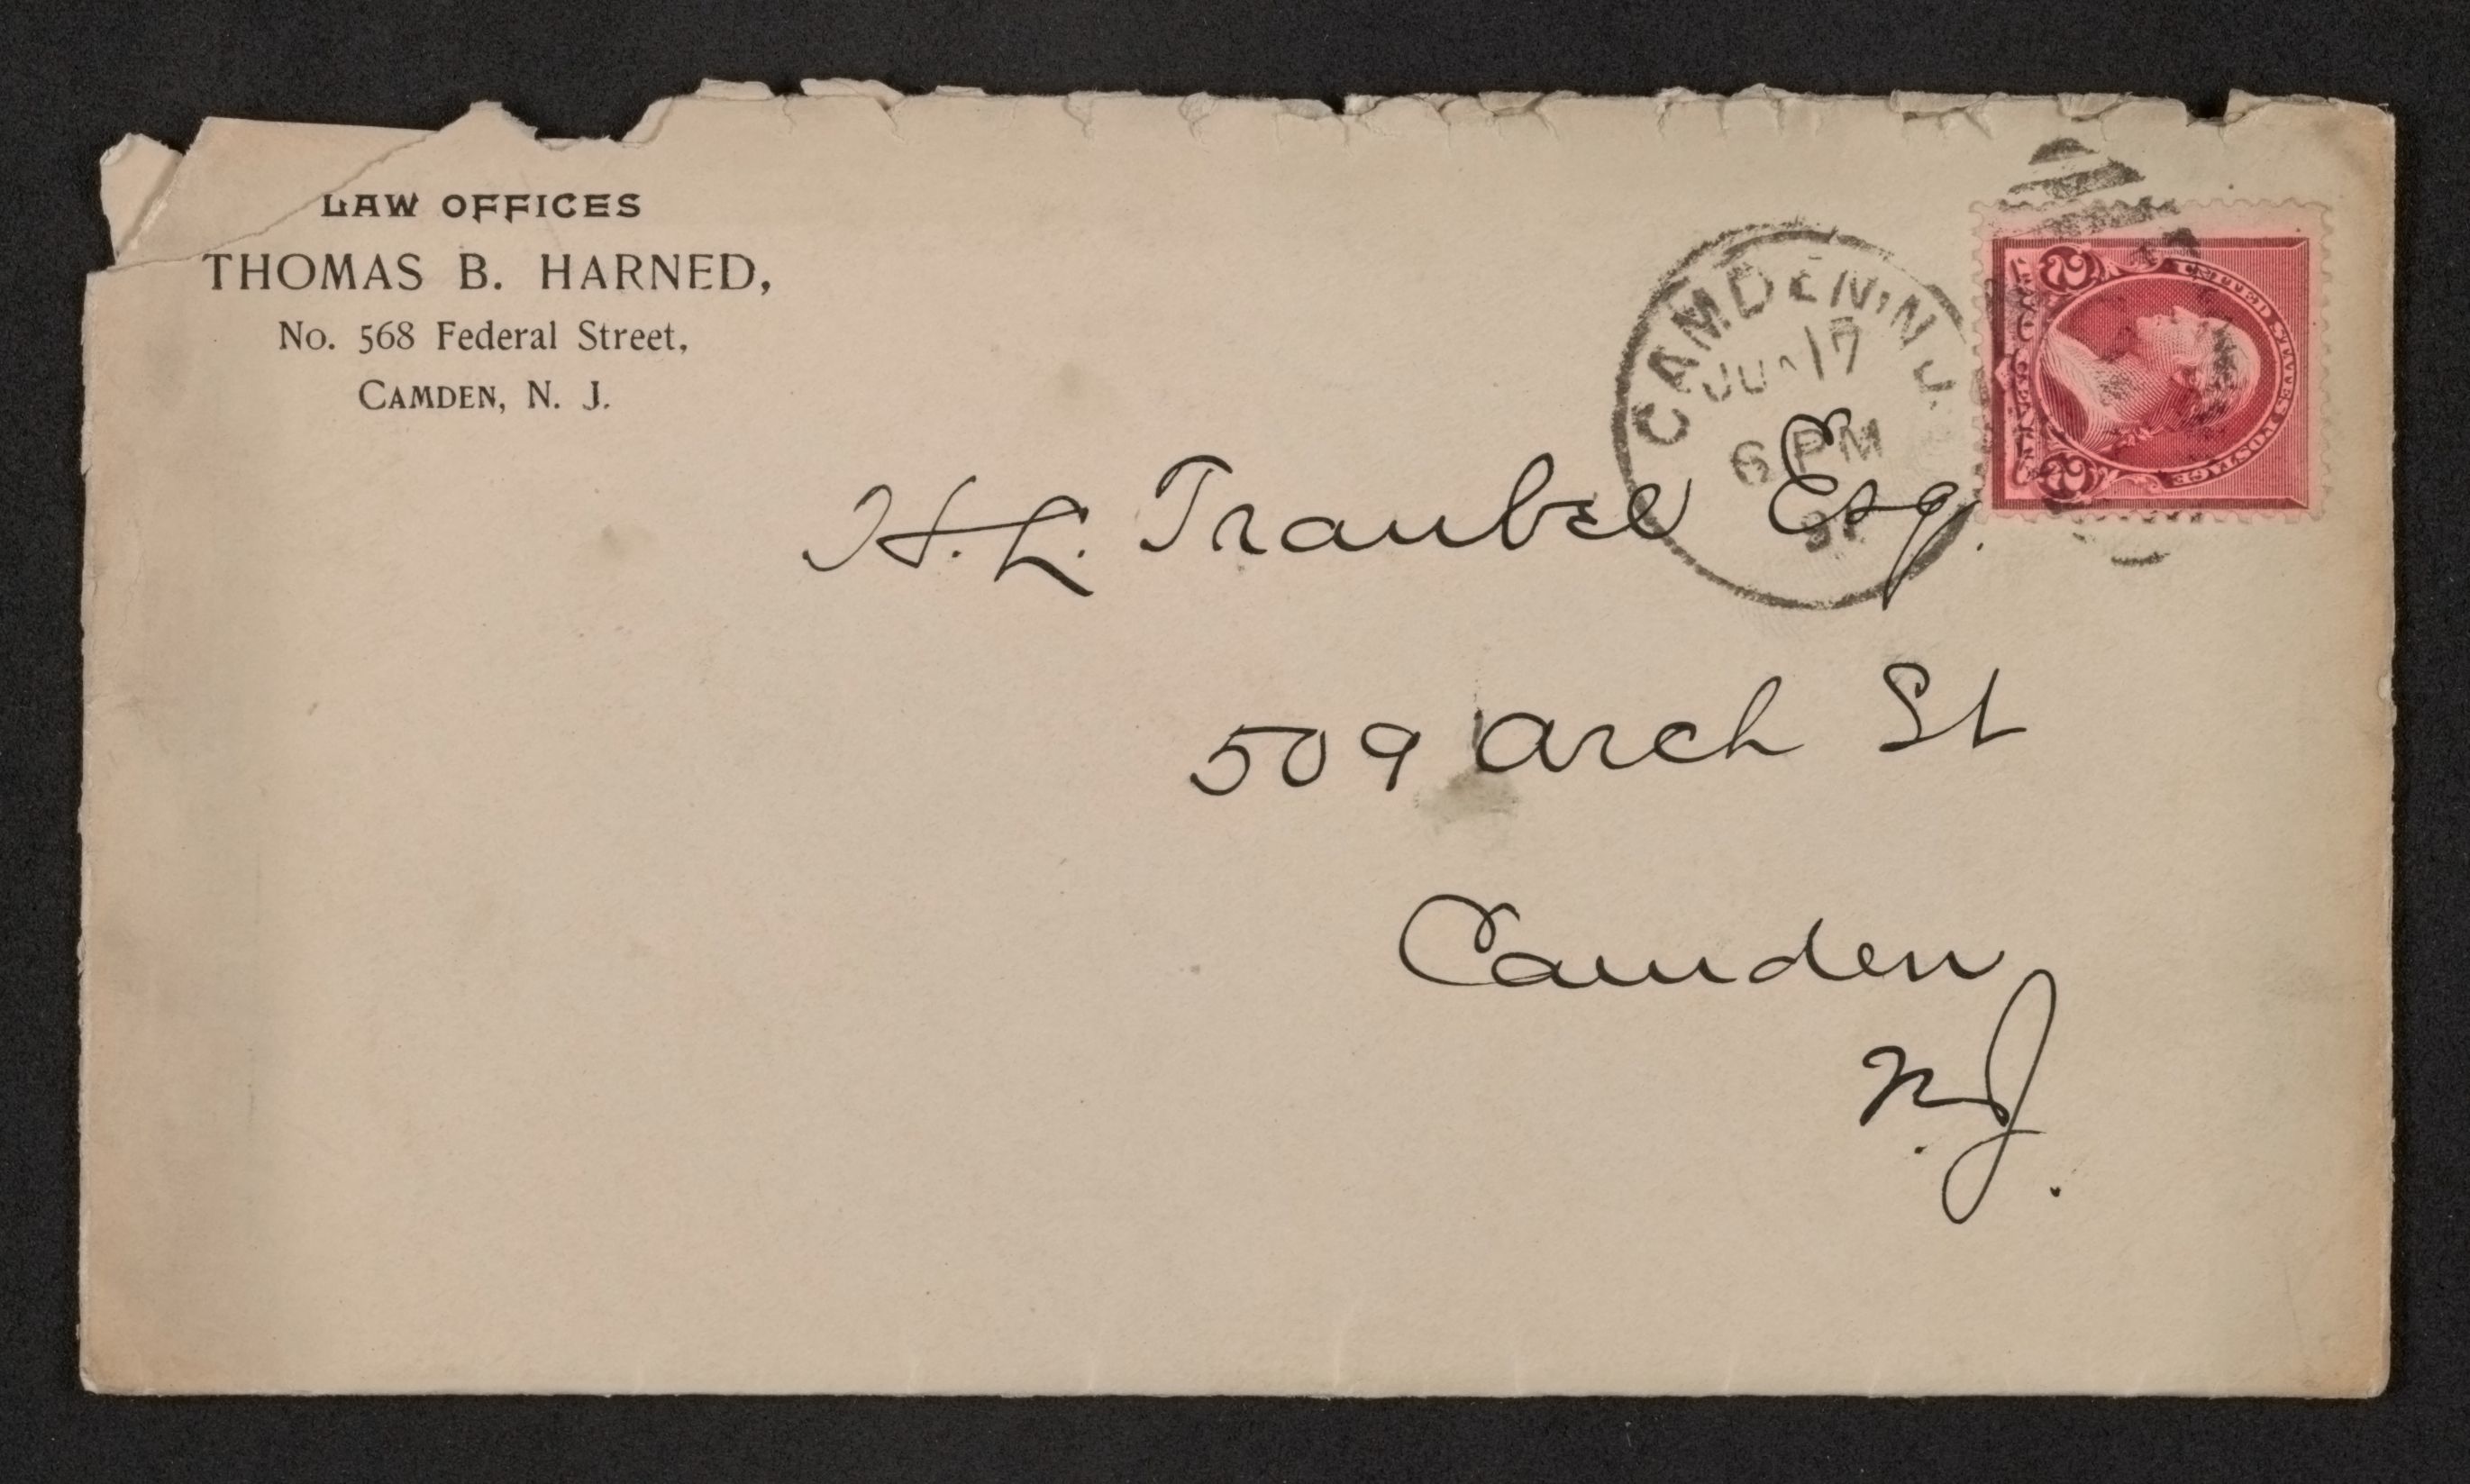 LAW OFFICES
THOMAS B. HARNED,
No. 568 Federal Street,
CAMDEN, N. J.
CAMDEN, N.J.
17
6 PM
UNITED STATES POSTAGE
TWO CENTS
2 2
H. L. Traubel Esq.
509 Arch St
Camden
N. J.